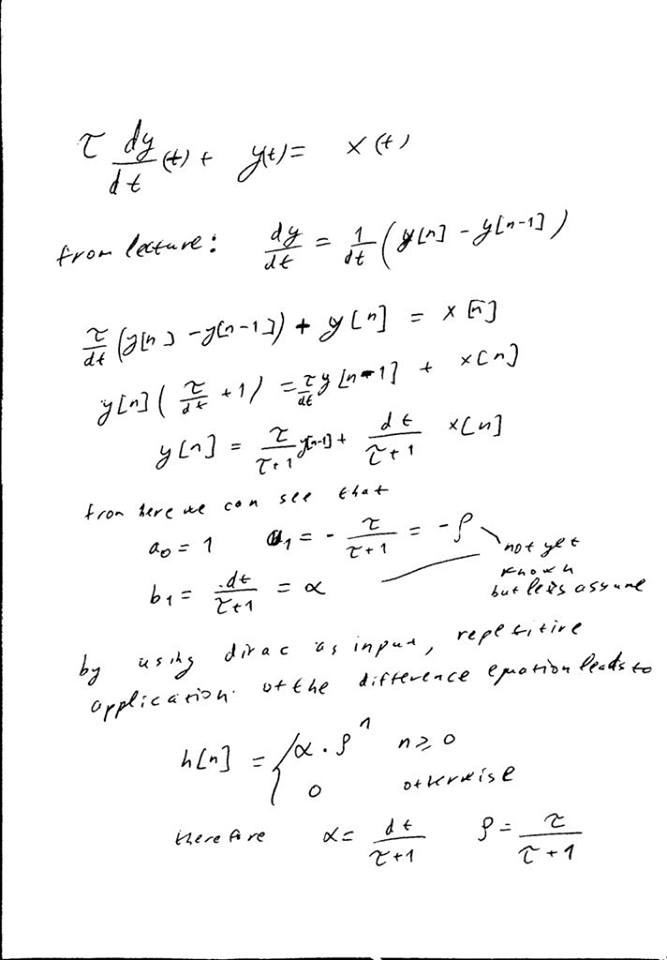 τ dy/dt (t) + y(t) = x(t)
from lecture: dy/dt = 1/dt (y[n] - y[n-1])
τ/dt (y[n] - y[n-1]) + y[n] = x[n]
y[n] (τ/dt + 1) = τ/dt y[n-1] + x[n]
y[n] = τ/(τ+1) y[n-1] + dt/(τ+1) x[n]
from here we can see that
a₀ = 1 a₁ = - τ/(τ+1) = -ρ
b₁ = dt/(τ+1) = α
not yet
known
but let's assume
by using dirac as input, repetitive
application of the difference equation leads to
h[n] = { α · ρⁿ n ≥ 0
0 otherwise
therefore α = dt/(τ+1) ρ = τ/(τ+1)